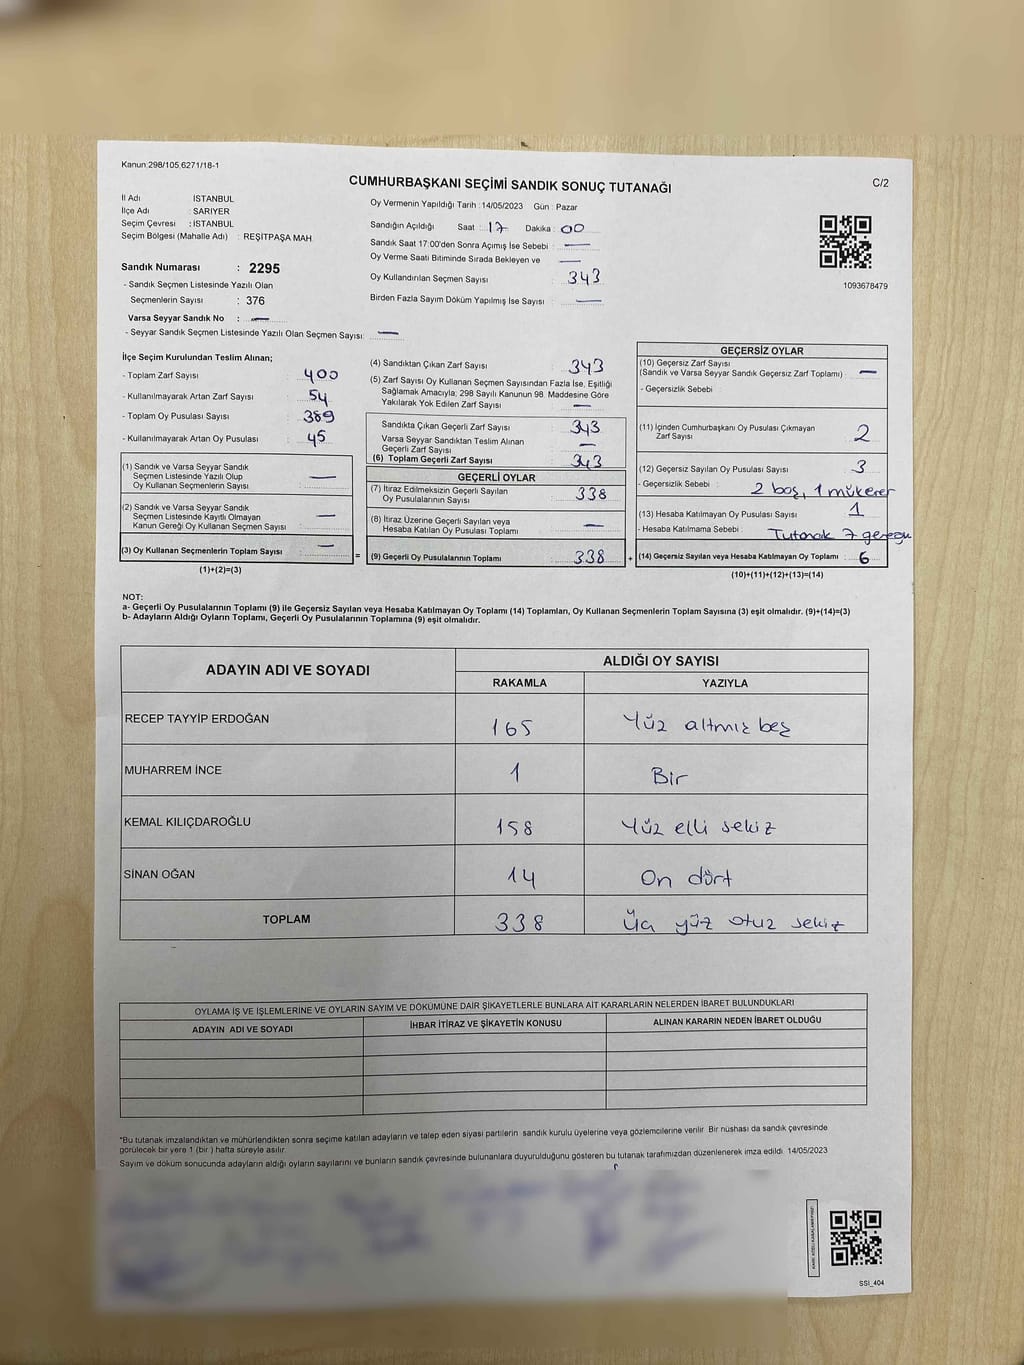 Kanun:298/105,6271/18-1
CUMHURBAŞKANI SEÇİMİ SANDIK SONUÇ TUTANAĞI
C/2
İl Adı İSTANBUL
İlçe Adı : SARIYER
Seçim Çevresi : İSTANBUL
Seçim Bölgesi (Mahalle Adı) : REŞİTPAŞA MAH.
Sandık Numarası : 2295
- Sandık Seçmen Listesinde Yazılı Olan
Seçmenlerin Sayısı : 376
Varsa Seyyar Sandık No : —
- Seyyar Sandık Seçmen Listesinde Yazılı Olan Seçmen Sayısı: —
Oy Vermenin Yapıldığı Tarih :14/05/2023 Gün : Pazar
Sandığın Açıldığı Saat : 17 Dakika : 00
Sandık Saat 17:00'den Sonra Açımış İse Sebebi : —
Oy Verme Saati Bitiminde Sırada Bekleyen ve —
Oy Kullandırılan Seçmen Sayısı : 343
Birden Fazla Sayım Döküm Yapılmış İse Sayısı : —
1093678479
İlçe Seçim Kurulundan Teslim Alınan;
- Toplam Zarf Sayısı : 400
- Kullanılmayarak Artan Zarf Sayısı : 54
- Toplam Oy Pusulası Sayısı : 389
- Kullanılmayarak Artan Oy Pusulası : 45
(1) Sandık ve Varsa Seyyar Sandık
Seçmen Listesinde Yazılı Olup
Oy Kullanan Seçmenlerin Sayısı : —
(2) Sandık ve Varsa Seyyar Sandık
Seçmen Listesinde Kayıtlı Olmayan
Kanun Gereği Oy Kullanan Seçmen Sayısı : —
(3) Oy Kullanan Seçmenlerin Toplam Sayısı : —
(1)+(2)=(3)
(4) Sandıktan Çıkan Zarf Sayısı : 343
(5) Zarf Sayısı Oy Kullanan Seçmen Sayısından Fazla İse, Eşitliği
Sağlamak Amacıyla; 298 Sayılı Kanunun 98. Maddesine Göre
Yakılarak Yok Edilen Zarf Sayısı : —
Sandıkta Çıkan Geçerli Zarf Sayısı : 343
Varsa Seyyar Sandıktan Teslim Alınan
Geçerli Zarf Sayısı : —
(6) Toplam Geçerli Zarf Sayısı : 343
GEÇERLİ OYLAR
(7) İtiraz Edilmeksizin Geçerli Sayılan
Oy Pusulalarının Sayısı : 338
(8) İtiraz Üzerine Geçerli Sayılan veya
Hesaba Katılan Oy Pusulası Toplamı : —
= (9) Geçerli Oy Pusulalarının Toplamı : 338 +
GEÇERSİZ OYLAR
(10) Geçersiz Zarf Sayısı
(Sandık ve Varsa Seyyar Sandık Geçersiz Zarf Toplamı) : —
- Geçersizlik Sebebi :
(11) İçinden Cumhurbaşkanı Oy Pusulası Çıkmayan
Zarf Sayısı : 2
(12) Geçersiz Sayılan Oy Pusulası Sayısı : 3
- Geçersizlik Sebebi : 2 boş, 1 mükerer
(13) Hesaba Katılmayan Oy Pusulası Sayısı : 1
- Hesaba Katılmama Sebebi : Tutanak 7 gereğu
(14) Geçersiz Sayılan veya Hesaba Katılmayan Oy Toplamı : 6
(10)+(11)+(12)+(13)=(14)
NOT:
a- Geçerli Oy Pusulalarının Toplamı (9) ile Geçersiz Sayılan veya Hesaba Katılmayan Oy Toplamı (14) Toplamları, Oy Kullanan Seçmenlerin Toplam Sayısına (3) eşit olmalıdır. (9)+(14)=(3)
b- Adayların Aldığı Oyların Toplamı, Geçerli Oy Pusulalarının Toplamına (9) eşit olmalıdır.
ADAYIN ADI VE SOYADI ALDIĞI OY SAYISI
RAKAMLA YAZIYLA
RECEP TAYYİP ERDOĞAN 165 Yüz altmış beş
MUHARREM İNCE 1 Bir
KEMAL KILIÇDAROĞLU 158 Yüz elli sekiz
SİNAN OĞAN 14 On dört
TOPLAM 338 Üç yüz otuz sekiz
OYLAMA İŞ VE İŞLEMLERİNE VE OYLARIN SAYIM VE DÖKÜMÜNE DAİR ŞİKAYETLERLE BUNLARA AİT KARARLARIN NELERDEN İBARET BULUNDUKLARI
ADAYIN ADI VE SOYADI İHBAR İTİRAZ VE ŞİKAYETİN KONUSU ALINAN KARARIN NEDEN İBARET OLDUĞU
*Bu tutanak imzalandıktan ve mühürlendikten sonra seçime katılan adayların ve talep eden siyasi partilerin sandık kurulu üyelerine veya gözlemcilerine verilir. Bir nüshası da sandık çevresinde
görülecek bir yere 1 (bir) hafta süreyle asılır.
Sayım ve döküm sonucunda adayların aldığı oyların sayılarını ve bunların sandık çevresinde bulunanlara duyurulduğunu gösteren bu tutanak tarafımızdan düzenlenerek imza edildi. 14/05/2023
SSI_404